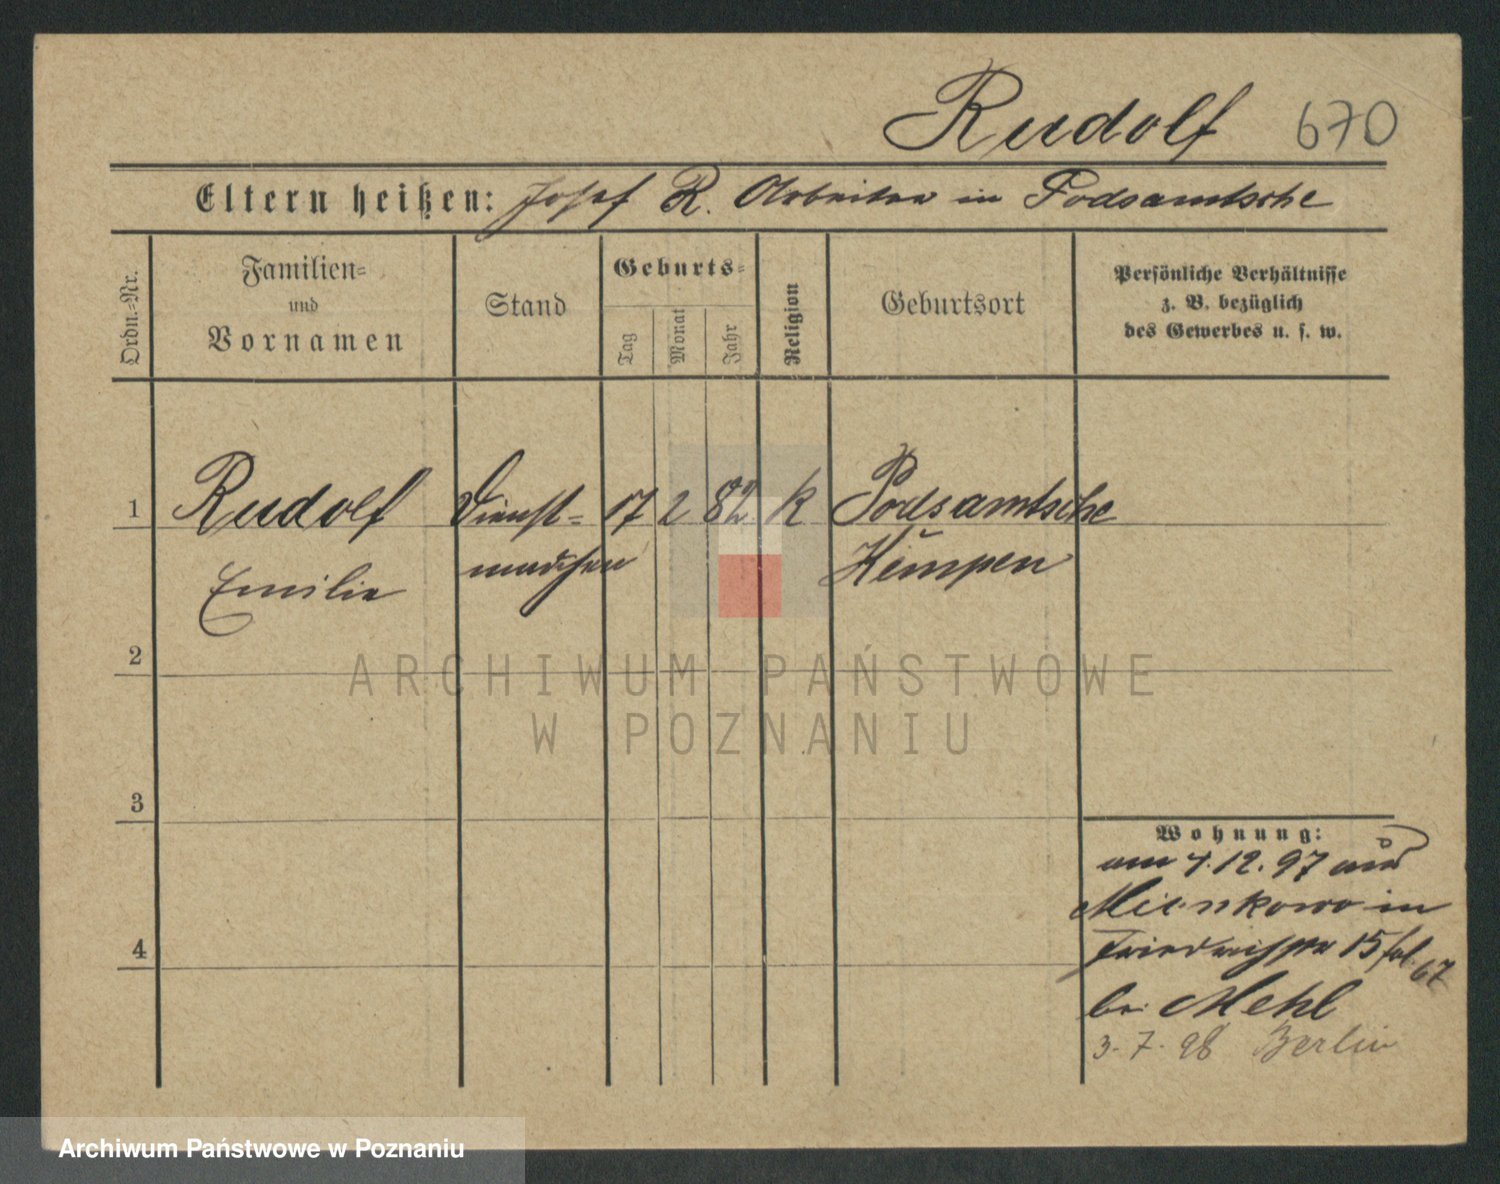 Rudolf 670
Eltern heißen: Josef R. Arbeiter in Podsamtsche
Ordn.-Nr.
Familien-
und
Vornamen
Stand
Geburts-
Tag
Monat
Jahr
Religion
Geburtsort
Persönliche Verhältnisse
z. B. bezüglich
des Gewerbes u. s. w.
1 Rudolf Dienst- 17 2 82 k Podsamtsche
Emilie mädchen Kempen
2
3
4
Wohnung:
am 4.12.97 aus
in
15 67
bei Mehl
3.7.98 Berlin
ARCHIWUM PAŃSTWOWE
W POZNANIU
Archiwum Państwowe w Poznaniu